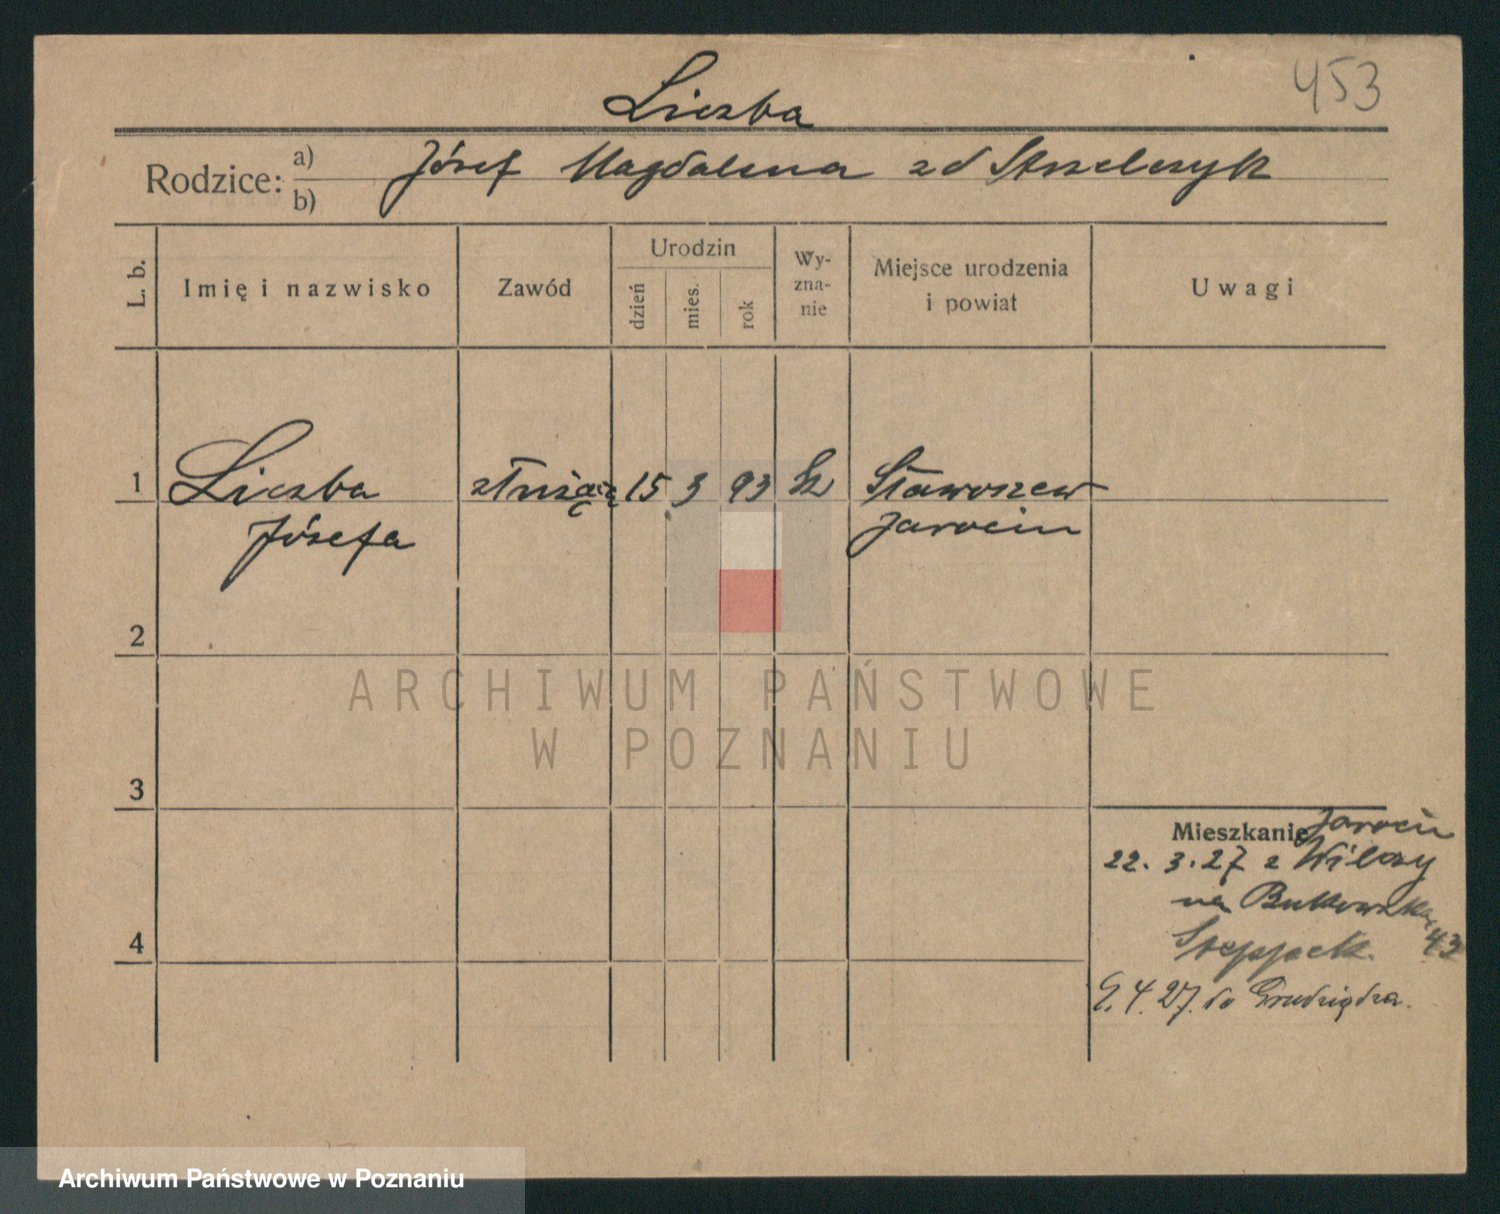 453
Liczba
Rodzice: a) b) Józef Magdalena zd Strzelczyk
L. b. Imię i nazwisko Zawód Urodzin dzień mies. rok Wy-zna-nie Miejsce urodzenia i powiat Uwagi
1 Liczba służąca 15 3 93 Stawoszew
Józefa Jarocin
2
ARCHIWUM PAŃSTWOWE
W POZNANIU
3
Mieszkanie Jarocin
22. 3. 27 z Wilczy
na Bukowską 43
4
9. 4. 27. do Grudziądza.
Archiwum Państwowe w Poznaniu